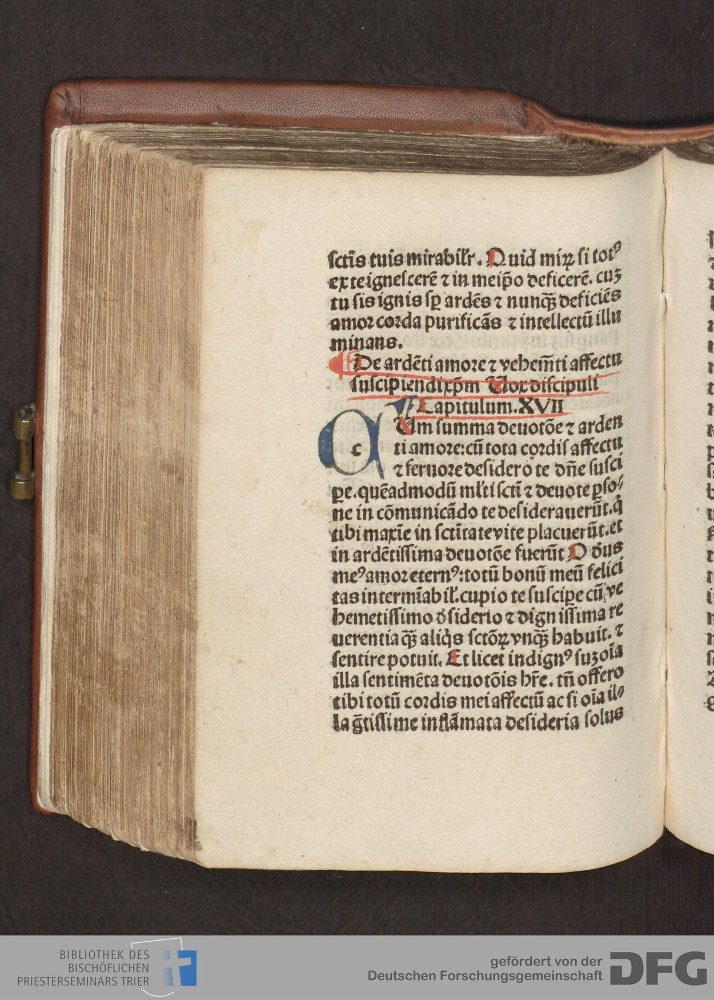 sctīs tuis mirabilʼr. Quid miꝝ si totꝰ
ex te ignescerē ⁊ in meip̄o deficerē. cuꝫ
tu sis ignis sꝑ ardēs ⁊ nunqꝫ deficiēs
amor corda purificās ⁊ intellectū illu
minans.
De ardēti amore ⁊ vehemēti affectu
suscipiendi xp̄m Vox discipuli
Capitulum. XVII
Cum summa deuotōe ⁊ arden
ti amore: cū tota cordis affectu
⁊ feruore desidero te dn̄e susci
pe. quēadmodū ml̓ti scti ⁊ deuote ꝑso⸗
ne in cōmunicādo te desiderauerūt. q̇
tibi maxīe in scīitate vite placuerūt. et
in ardētissima deuotōe fuerūt O dūs
meꝰ amor eternꝰ: totū bonū meū felici
tas intermīabil. cupio te suscipe cū ve
hemetissimo dsiderio ⁊ dignissima re
uerentia qꝫ aliqͥs sctōꝝ vnqꝫ habuit. ⁊
sentire potuit. Et licet indignꝰ suꝫ oīa
illa sentimēta deuotōis hr̄e. tn̄ offero
tibi totū cordis mei affectū ac si oīa il⸗
la g̃tissime inflāmata desideria solus
BIBLIOTHEK DES
BISCHÖFLICHEN
PRIESTERSEMINARS TRIER
gefördert von der
Deutschen Forschungsgemeinschaft
DFG